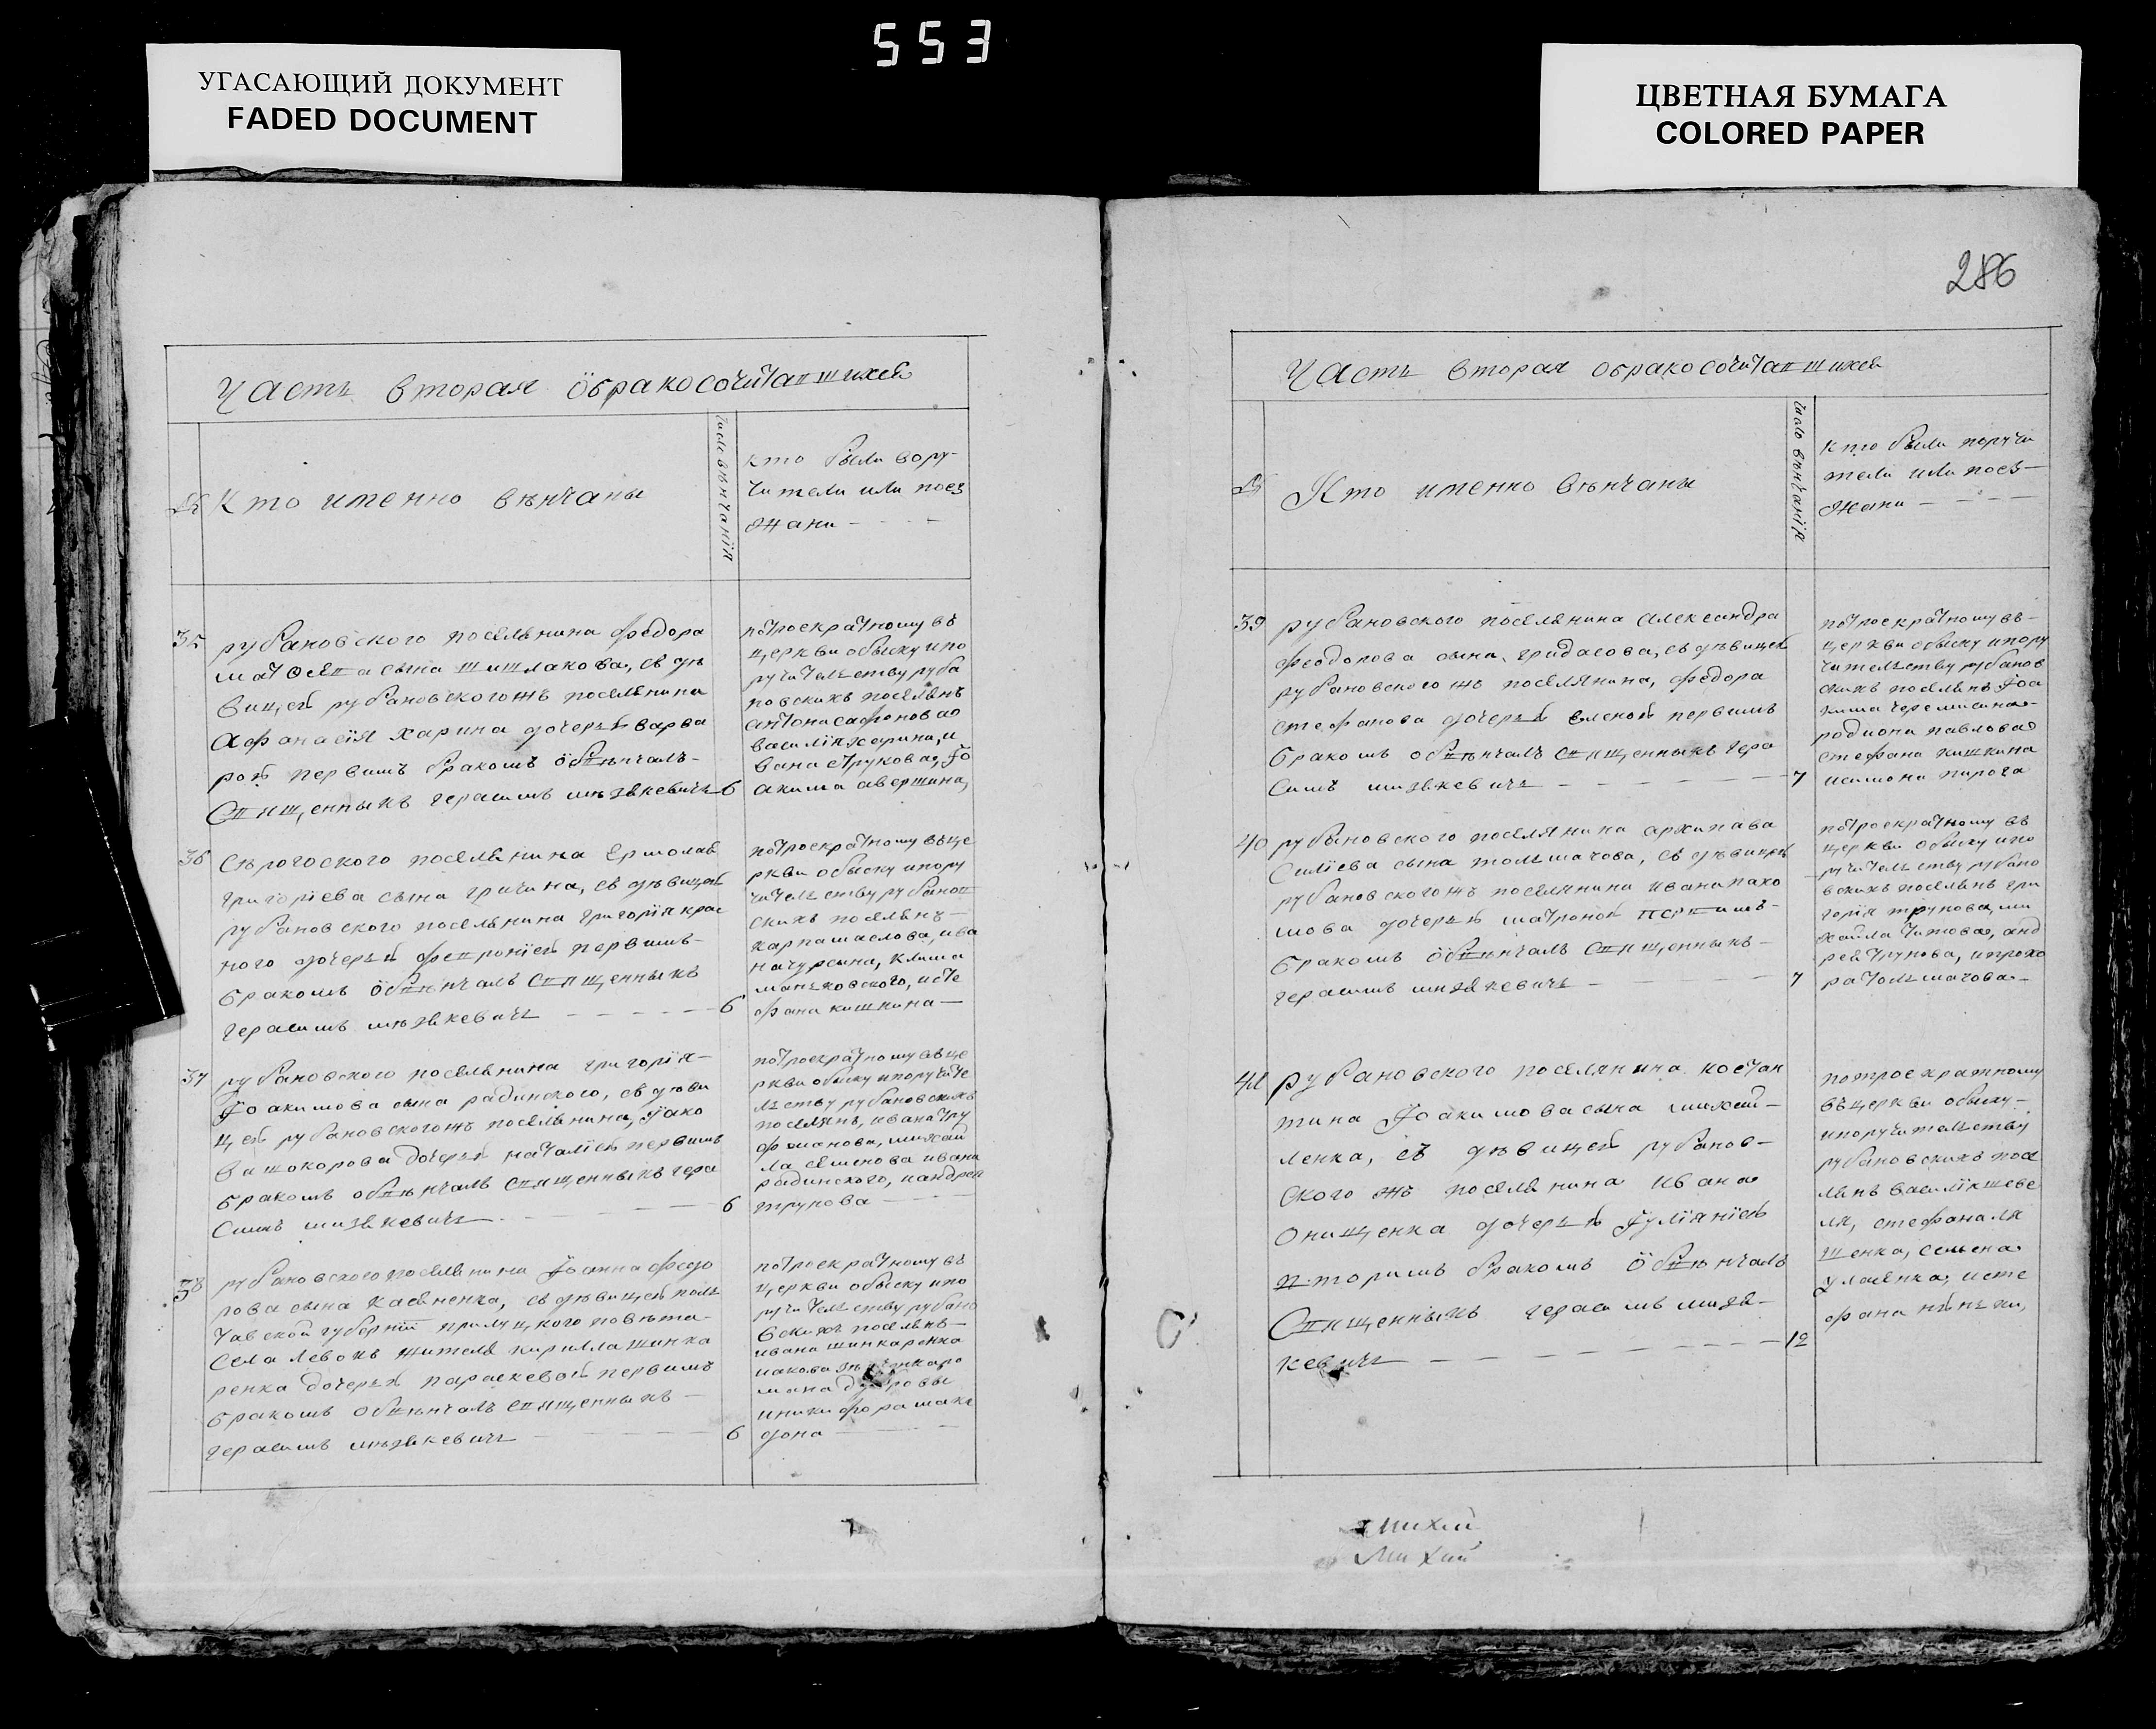 553
УГАСАЮЩИЙ ДОКУМЕНТ
FADED DOCUMENT
ЦВЕТНАЯ БУМАГА
COLORED PAPER
Часть вторая обракосочитавшихся
№
Кто именно вѣнчаны
число вѣнчанія
кто были пору-
чители или поез
жани
35
рубановского поселянина федора
матѳеева сына шишлакова, съ дѣ
вицей рубановскогожъ поселянина
Афанасія харина дочерью варва
рой первымъ бракомъ обвѣнчалъ
Священникъ герасимъ мизѣвкевичь
6
потроекратному въ
церкви обыску ипо
ручительству руба
новскихъ поселянъ
антона сафонова
василія харина, и
вана струкова, Іо
акима авершина,
36
Сѣрогоского поселянина Ермолая
григоріева сына гричина, съ дѣвицей
рубановского поселянина григорія крас
ного дочерью февроніей первымъ
бракомъ обвѣнчалъ священникъ
герасимъ мизѣвкевичь
6
потроекратному въце
ркви обыску ипору
чительству рубанов
скихъ поселянъ
карпа маслова, ива
на чурсина, клима
маньковского, исте
фана кишкина
37
рубановского поселянина григорія
Іоакимова сына радинского, съ дѣви
цей рубановскогожъ поселянина, Іако
ва шокорова дочерью наталіей первымъ
бракомъ обвѣнчалъ священникъ гера
симъ мизѣвкевичь
6
потроекратному въце
ркви обыску ипоручите
льству рубановскихъ
поселянъ, ивана тру
фманова, михаи
ла семенова ивана
радинского, иандрея
трунова
38
рубановского поселянина Іоанна федо
рова сына касяненка, съ дѣвицей пол
тавской губерніи прилуцкого повѣта
села левокъ жителя кирилла шинка
ренка дочерью параскевой первымъ
бракомъ обвѣнчалъ священникъ
герасимъ мизѣвкевичь
6
потроекратному въ
церкви обыску ипо
ручительству рубано
вскихъ поселянъ
ивана шинкаренка
иакова
мана дубровы
иникифора маке
дона
286
Часть вторая обракосочитавшихся
№
Кто именно вѣнчаны
число вѣнчанія
кто были поручи
тели или поез-
жани
39
рубановского поселянина александра
феодорова сына, гридасова, съ дѣвицей
рубановского жъ поселянина, федора
стефанова дочерью еленой первымъ
бракомъ обвѣнчалъ священникъ гера
симъ мизѣвкевичь
7
потроекратному въ
церкви обыску ипору
чительству рубанов
скихъ поселянъ Іоа
кима черемисина
родиона павлова
стефана кишкина
исимона пирога
40
рубановского поселянина архипава
силіева сына толмачова, съ дѣвицей
рубановскогожъ поселянина ивана пахо
мова дочерью матроной первымъ
бракомъ обвѣнчалъ священникъ
герасимъ мизѣвкевичь
7
потроекратному въ
церкви обыску ипо
ручительству рубано
вскихъ поселянъ гри
горія трунова, ми
хайла титова, анд
рея трунова, ипрохо
ра толмачова
41
рубановского поселянина костан
тина Іоакимова сына михай-
ленка, съ дѣвицей рубанов-
ского жъ поселянина ивана
онищенка дочерью Іуліяніей
вторымъ бракомъ обвѣнчалъ
Священникъ герасимъ мизѣв-
кевичь
12
потроекратному
въцеркви обыску
ипоручительству
рубановскихъ посе
лянъ василія шеве
ля, стефана ля
шенка, семена
уласенка, исте
фана
михай
Михай